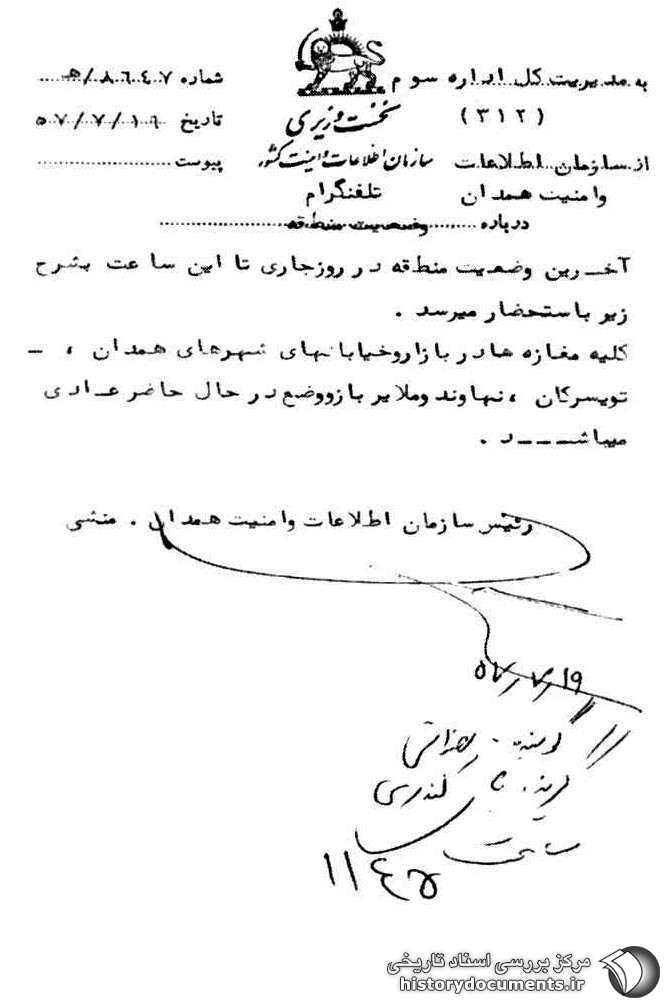 به مدیریت کل اداره سوم
(۳۱۲)
از سازمان اطلاعات
وامنیت همدان
نخست وزیری
سازمان اطلاعات و امنیت کشور
تلفنگرام
شماره ۸۶۴۷/هـ
تاریخ ۵۷/۷/۱۹
پیوست
درباره وضعیت منطقه
آخـرین وضعیت منطقه در روزجاری تا این ساعت بشرح
زیر باستحضار میرسد .
کلیه مغازه ها در بازار وخیابانهای شهرهای همدان ، ـ
تویسرکان ، نهاوند وملایر باز ووضع در حال حاضر عـادی
میباشـــد .
رئیس سازمان اطلاعات وامنیت همدان . منشی
۵۷/۷/۱۹
ساعت
۱۱۴۵
مرکز بررسی اسناد تاریخی
historydocuments.ir